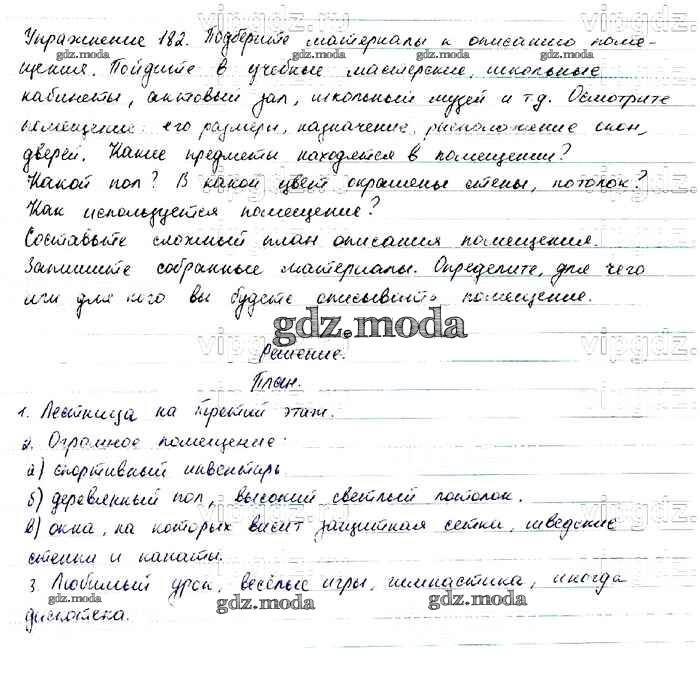 Упражнение 182. Подберите материалы к описанию поме-
щения. Пойдите в учебные мастерские, школьные
кабинеты, актовый зал, школьный музей и т.д. Осмотрите
помещение: его размеры, назначение, расположение окон,
дверей. Какие предметы находятся в помещении?
Какой пол? В какой цвет окрашены стены, потолок?
Как используется помещение?
Составьте сложный план описания помещения.
Запишите собранные материалы. Определите, для чего
или для кого вы будете описывать помещение.
gdz.moda
Решение.
План.
1. Лестница на третий этаж.
2. Огромное помещение:
а) спортивный инвентарь
б) деревянный пол, высокий светлый потолок.
в) окна, на которых висит защитная сетка, шведские
стенки и канаты.
3. Любимый урок, весёлые игры, гимнастика, иногда
дискотека.